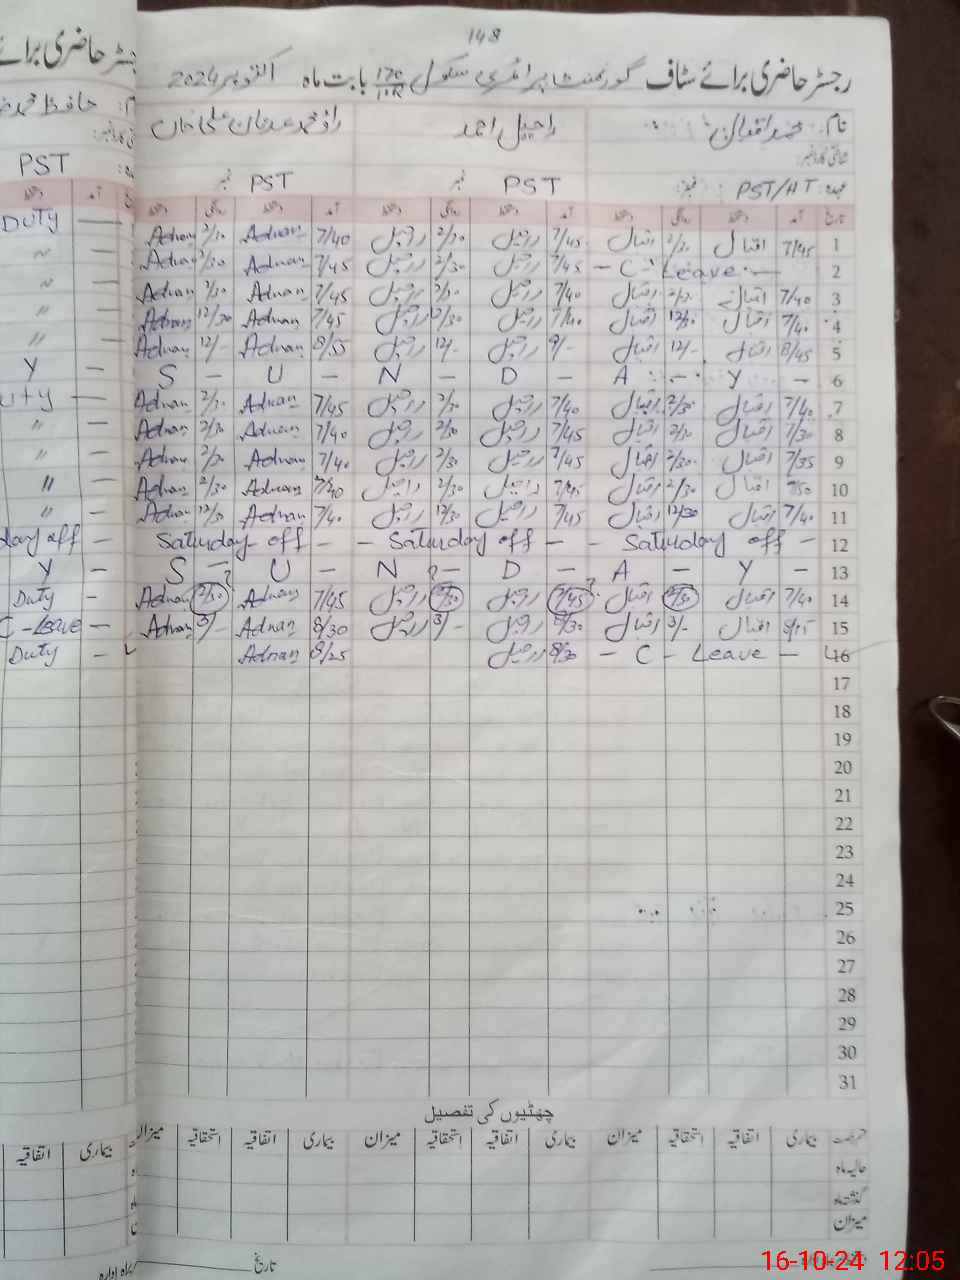 148
رجسٹر حاضری برائے سٹاف گورنمنٹ پرائمری سکول 170/11R بابت ماہ اکتوبر 2024
نام: محمد اقبال راحیل احمد راؤ محمد عدنان علی خاں
عہدہ: PST/HT نمبر: PST نمبر PST نمبر PST
تاریخ آمد دستخط روانگی دستخط آمد دستخط روانگی دستخط آمد دستخط روانگی دستخط آمد
1 7/45 اقبال 2/30 اقبال 7/45 راحیل 2/30 راحیل 7/40 Adnan 2/30 Adnan — Duty
2 — C - Leave — 7/45 راحیل 2/30 راحیل 7/45 Adnan 2/30 Adnan — "
3 7/40 اقبال 2/30 اقبال 7/40 راحیل 2/30 راحیل 7/45 Adnan 2/30 Adnan — "
4 7/40 اقبال 12/30 اقبال 7/40 راحیل 12/30 راحیل 7/45 Adnan 12/30 Adnan — "
5 8/45 اقبال 12/- اقبال 9/- راحیل 12/- راحیل 8/55 Adnan 12/- Adnan — "
6 S — U — N — D — A — Y — Y —
7 7/40 اقبال 2/30 اقبال 7/40 راحیل 2/30 راحیل 7/45 Adnan 2/30 Adnan — uty
8 7/30 اقبال 2/30 اقبال 7/45 راحیل 2/30 راحیل 7/40 Adnan 2/30 Adnan — "
9 7/35 اقبال 2/30 اقبال 7/45 راحیل 2/30 راحیل 7/40 Adnan 2/30 Adnan — "
10 اقبال 2/30 اقبال 7/45 راحیل 2/30 راحیل 7/40 Adnan 2/30 Adnan — "
11 7/40 اقبال 12/30 اقبال 7/45 راحیل 12/30 راحیل 7/40 Adnan 12/30 Adnan — "
12 Saturday off — Saturday off — Saturday off — day off —
13 S — U — N — D — A — Y — Y —
14 7/40 اقبال 2/30 اقبال 7/45 راحیل 2/30 راحیل 7/45 Adnan 2/30 Adnan — Duty
15 8/15 اقبال 3/- اقبال 8/30 راحیل 3/- راحیل 8/30 Adnan 3/- Adnan — C-Leave
16 — C - Leave — 8/30 راحیل 8/25 Adnan — Duty
17
18
19
20
21
22
23
24
25
26
27
28
29
30
31
چھٹیوں کی تفصیل
بیماری اتفاقیہ استحقاقیہ میزان بیماری اتفاقیہ استحقاقیہ میزان بیماری اتفاقیہ استحقاقیہ میزان بیماری اتفاقیہ
حالیہ ماہ
گذشتہ ماہ
میزان
تاریخ
16-10-24 12:05